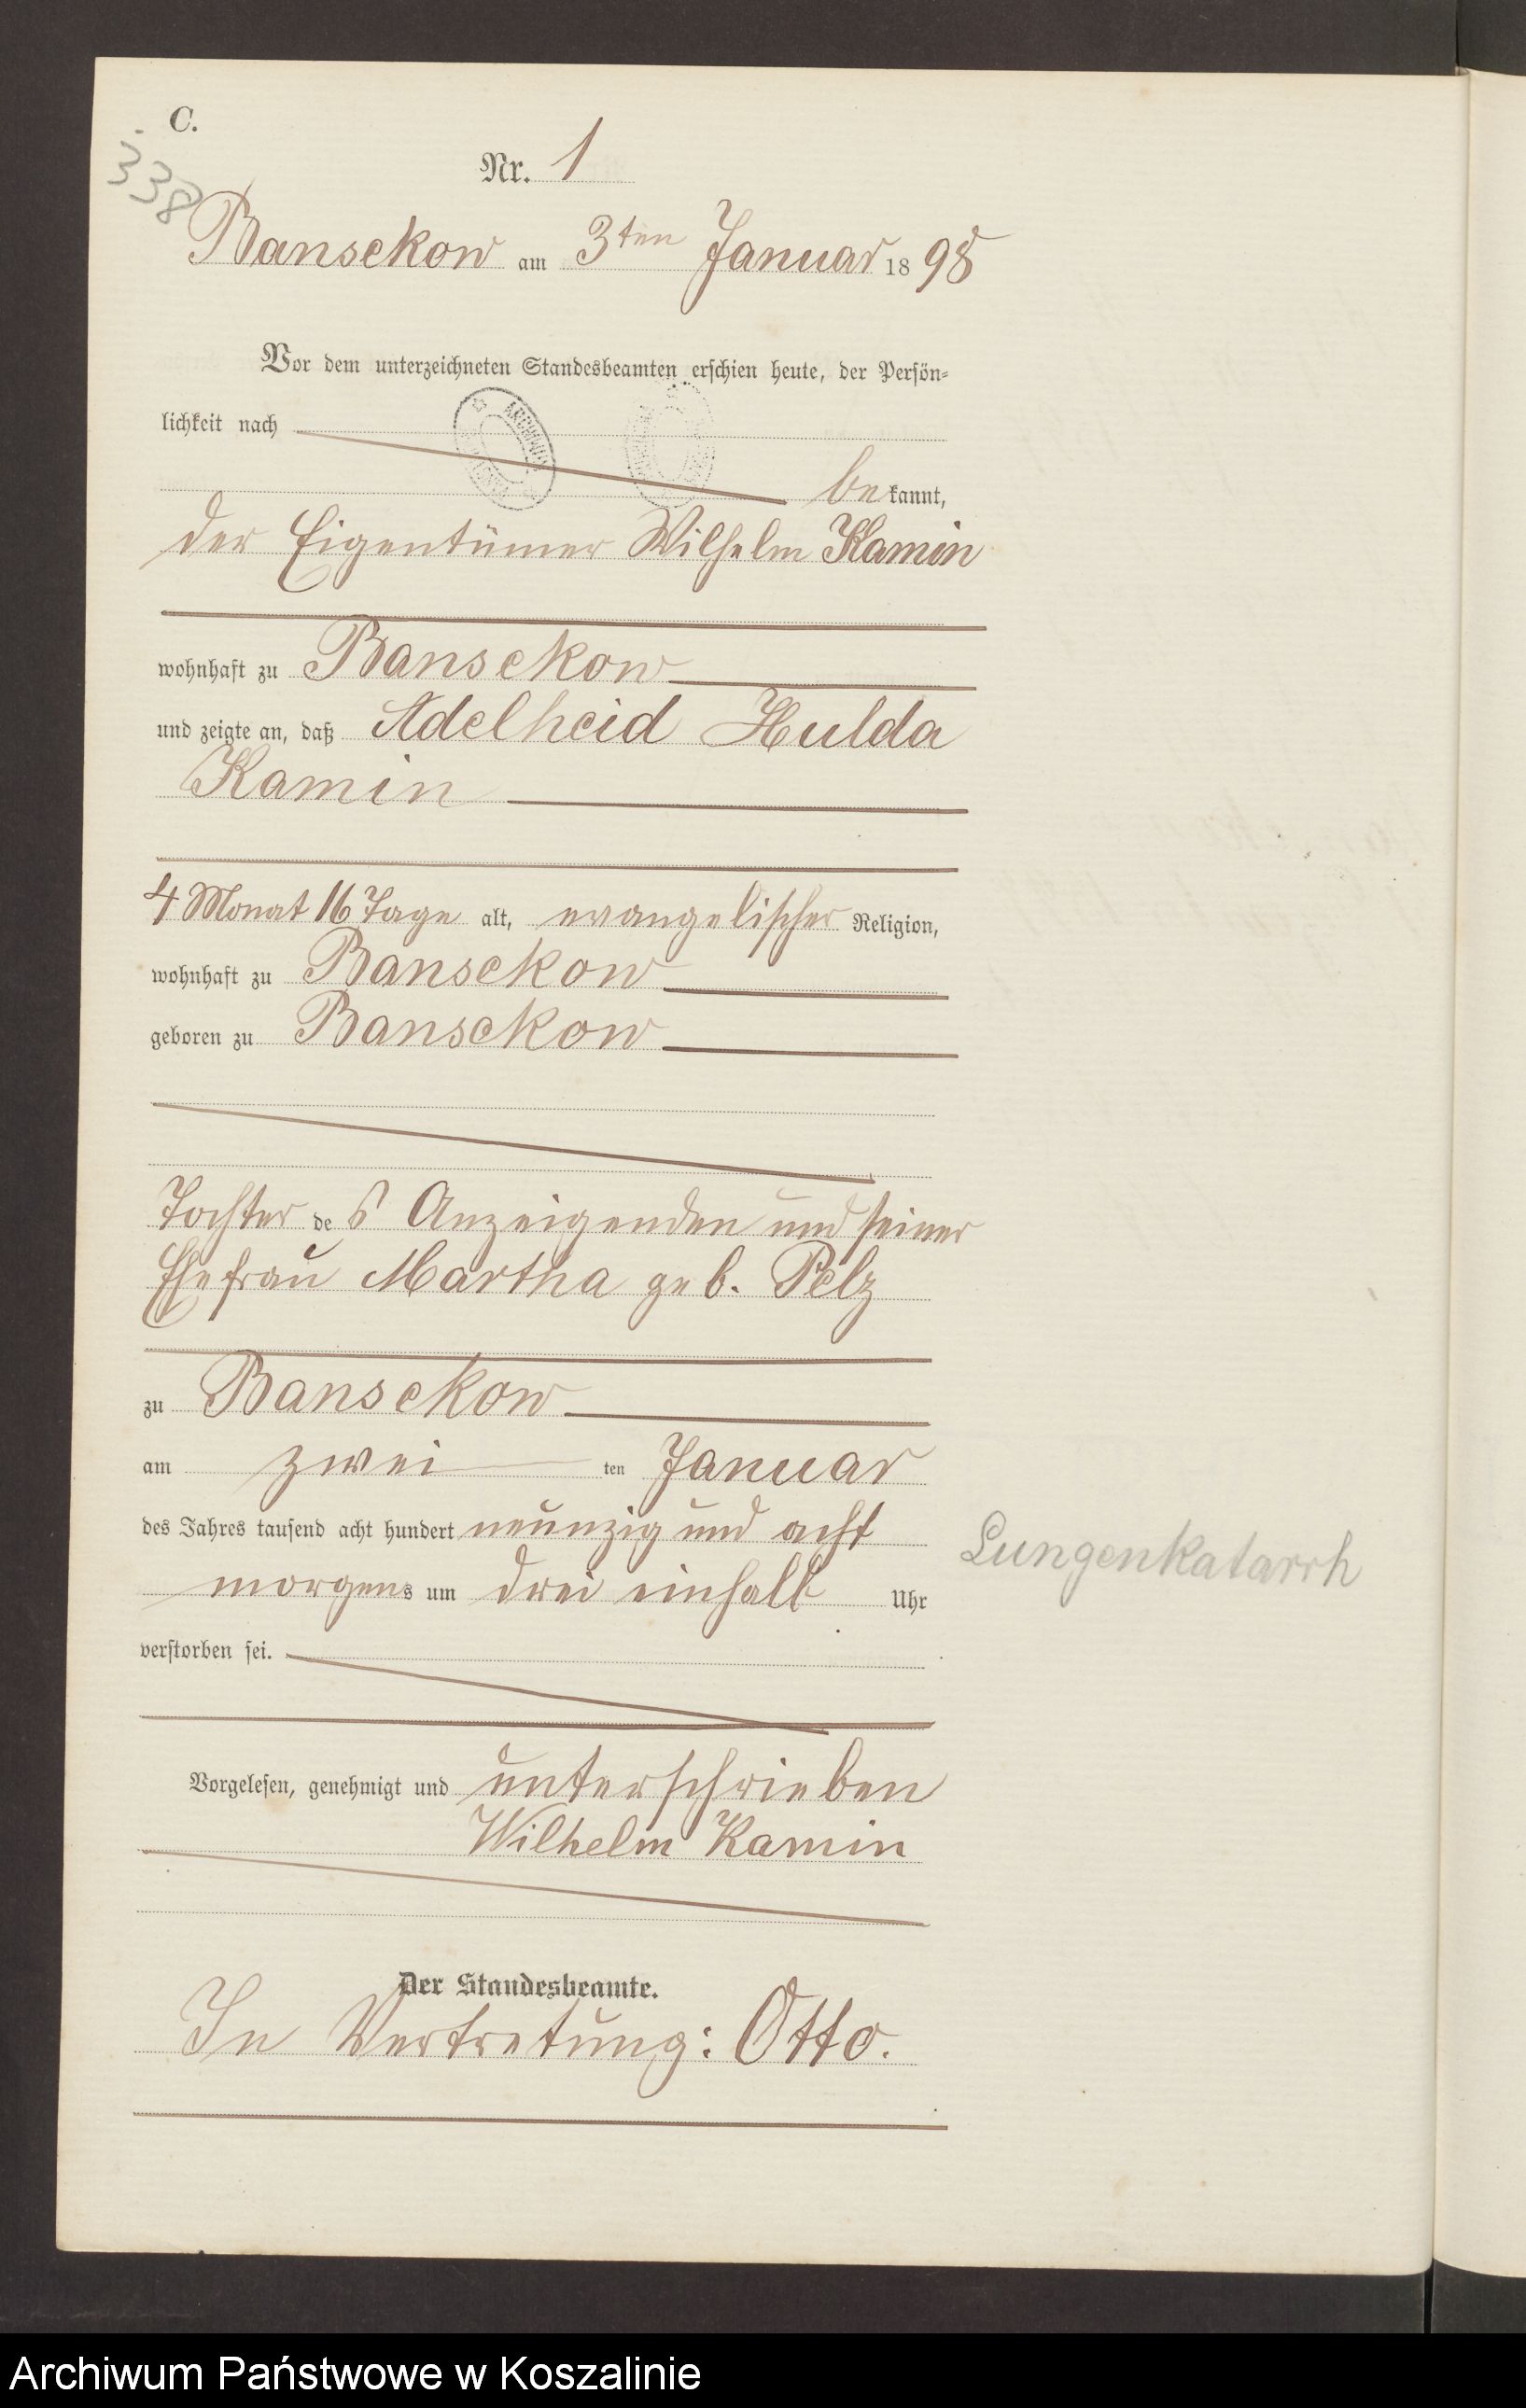 C.
338
Nr. 1
Bansekow am 3ten Januar 1898
Vor dem unterzeichneten Standesbeamten erschien heute, der Persön-
lichkeit nach
bekannt,
der Eigentümer Wilhelm Kamin
wohnhaft zu Bansekow
und zeigte an, daß Adelheid Hulda
Kamin
4 Monat 16 Tage alt, evangelischer Religion,
wohnhaft zu Bansekow
geboren zu Bansekow
Tochter des Anzeigenden und seiner
Ehefrau Martha geb. Pelz
zu Bansekow
am zwei ten Januar
des Jahres tausend acht hundert neunzig und acht
Lungenkatarrh
morgens um drei einhalb Uhr
verstorben sei.
Vorgelesen, genehmigt und unterschrieben
Wilhelm Kamin
Der Standesbeamte.
In Vertretung: Otto.
Archiwum Państwowe w Koszalinie